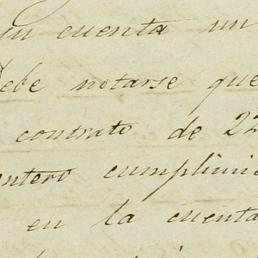 su cuenta un
Debe notarse que
contrato de 22
entero cumplimie
en la cuenta